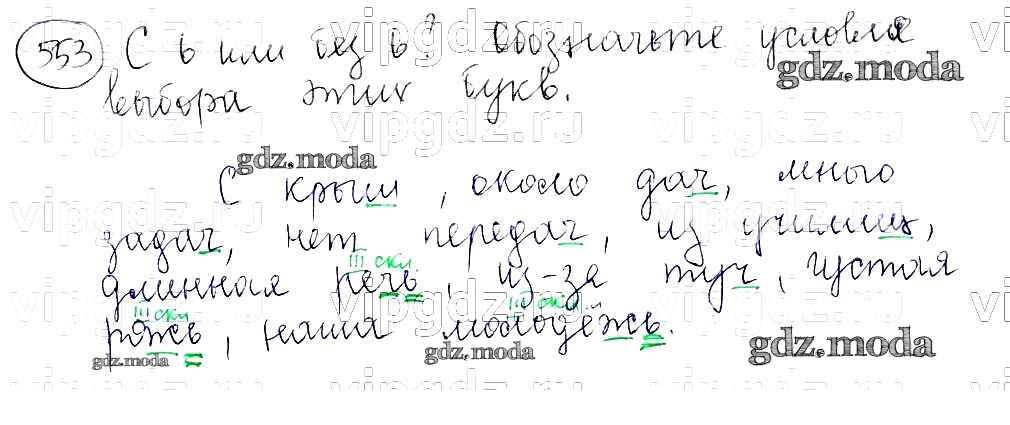 553 С ь или без ь? Обозначьте условия
выбора этих букв.
gdz.moda
gdz.moda
С крыш, около дач, много
задач, нет передач, из училищ,
III скл
длинная речь, из-за туч, густая
III скл III скл
рожь, наша молодёжь.
gdz.moda gdz.moda gdz.moda